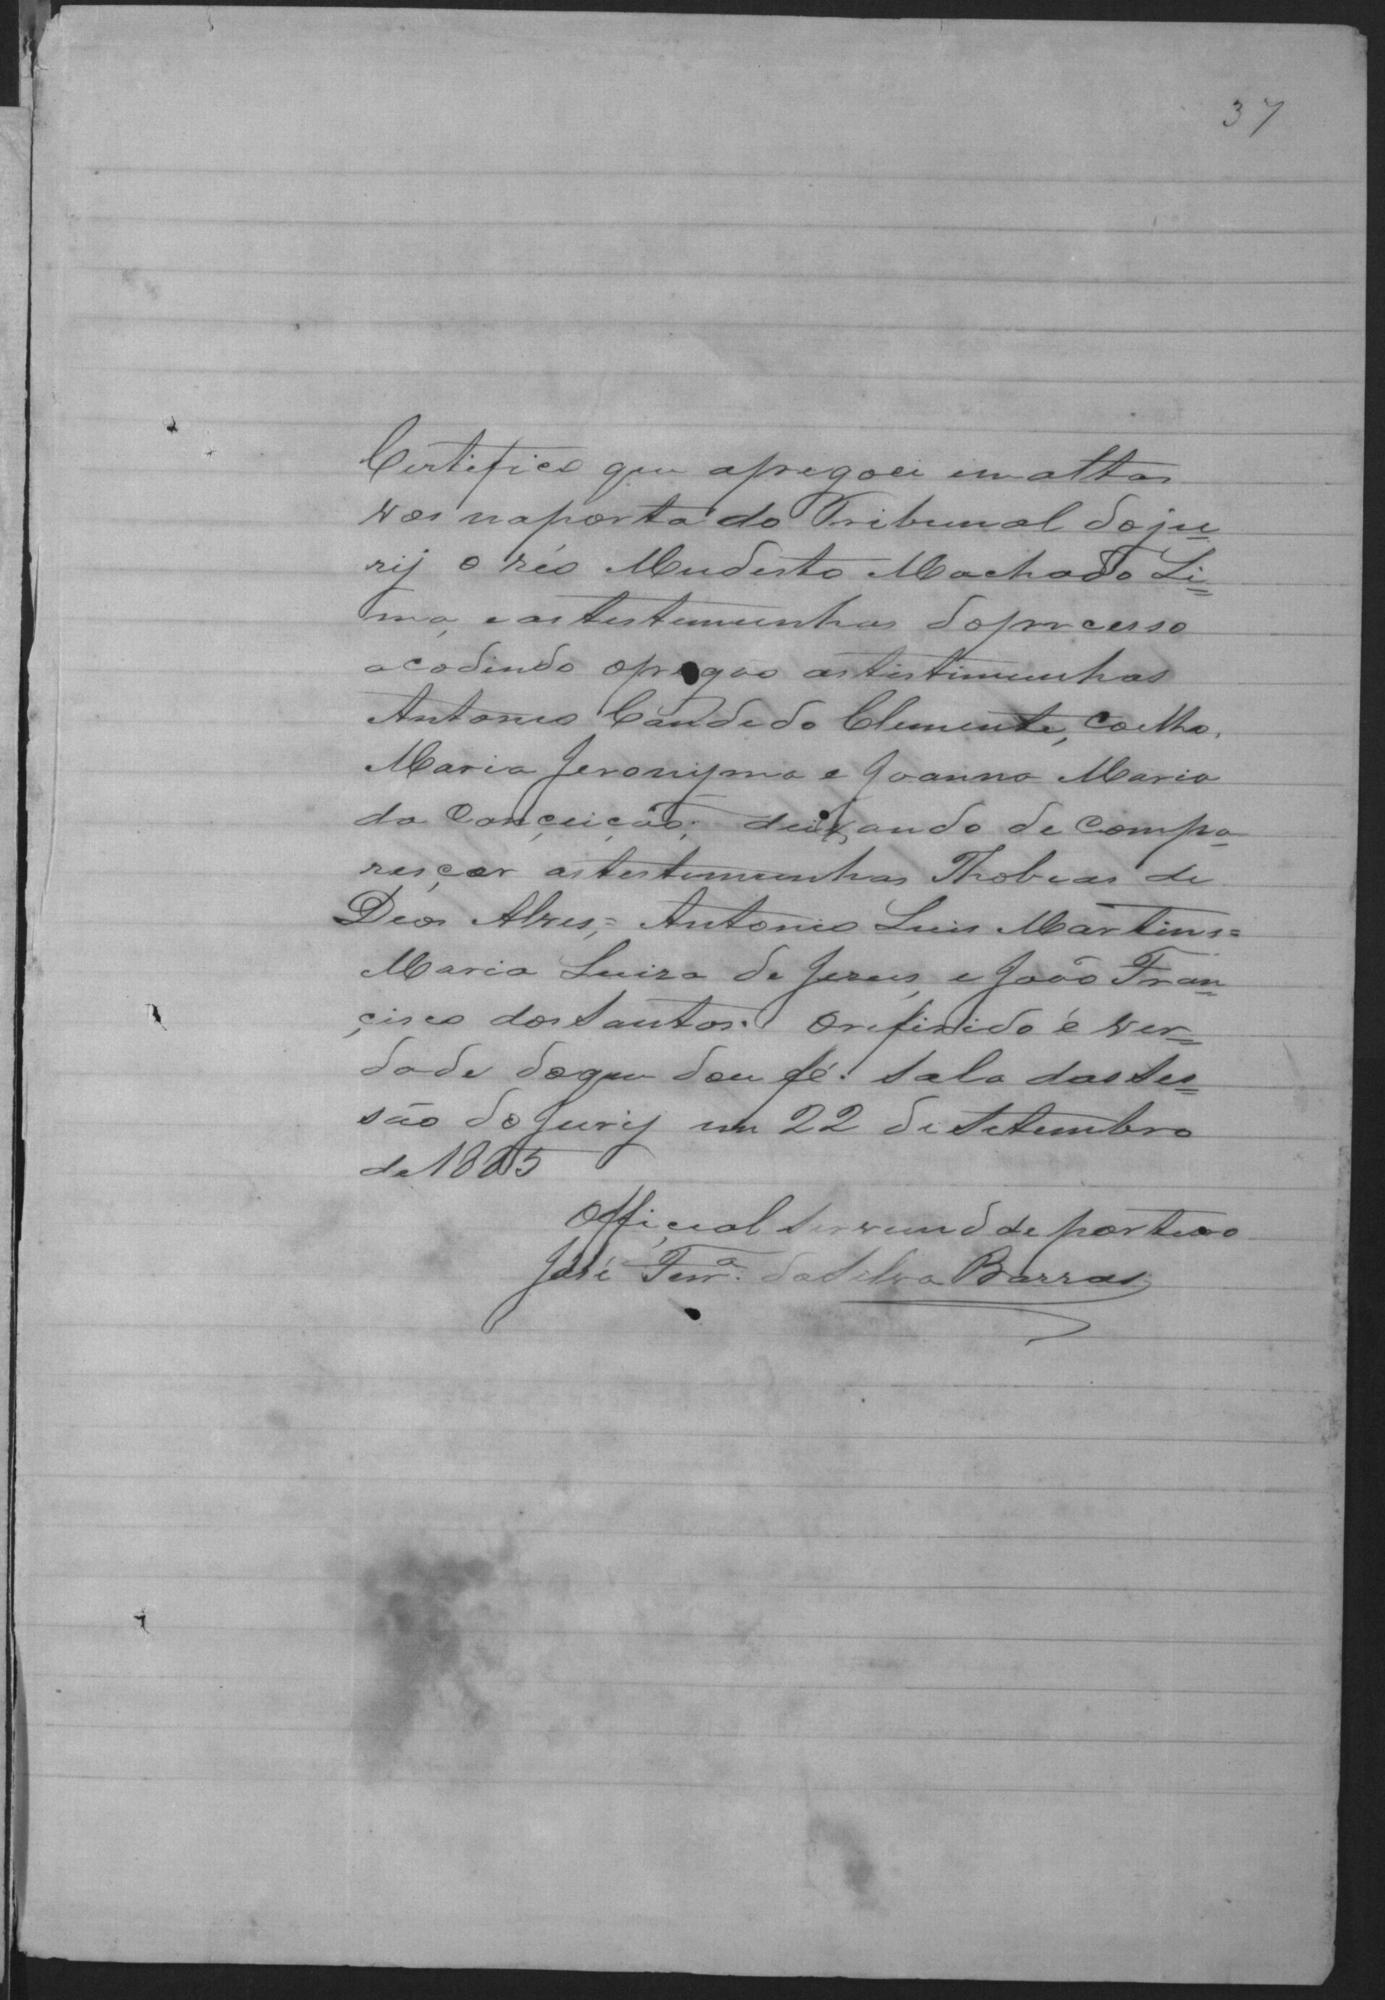 37
Certifico que apregoei em altas
vos na porta do Tribunal do ju=
rij o réo Mudesto Machado Li=
ma, e as testemunhas do processo
acodindo o pregão as testimunhas
Antonio Candido Clemente, Coelho,
Maria Jeronyma e Joanna Maria
da Conçeição; deixando de compa=
resçer as testemunhas Thobias de
Deos Alves,= Antonio Luis Martins=
Maria Luiza de Jezus, e João Fran=
çisco dos Santos. O refirido é ver=
dade do que dou fé. Sala das ses=
são do Jurij em 22 de Setembro
de 1885
Offiçial servind de porteiro
José Ferrª. da Silva Barros